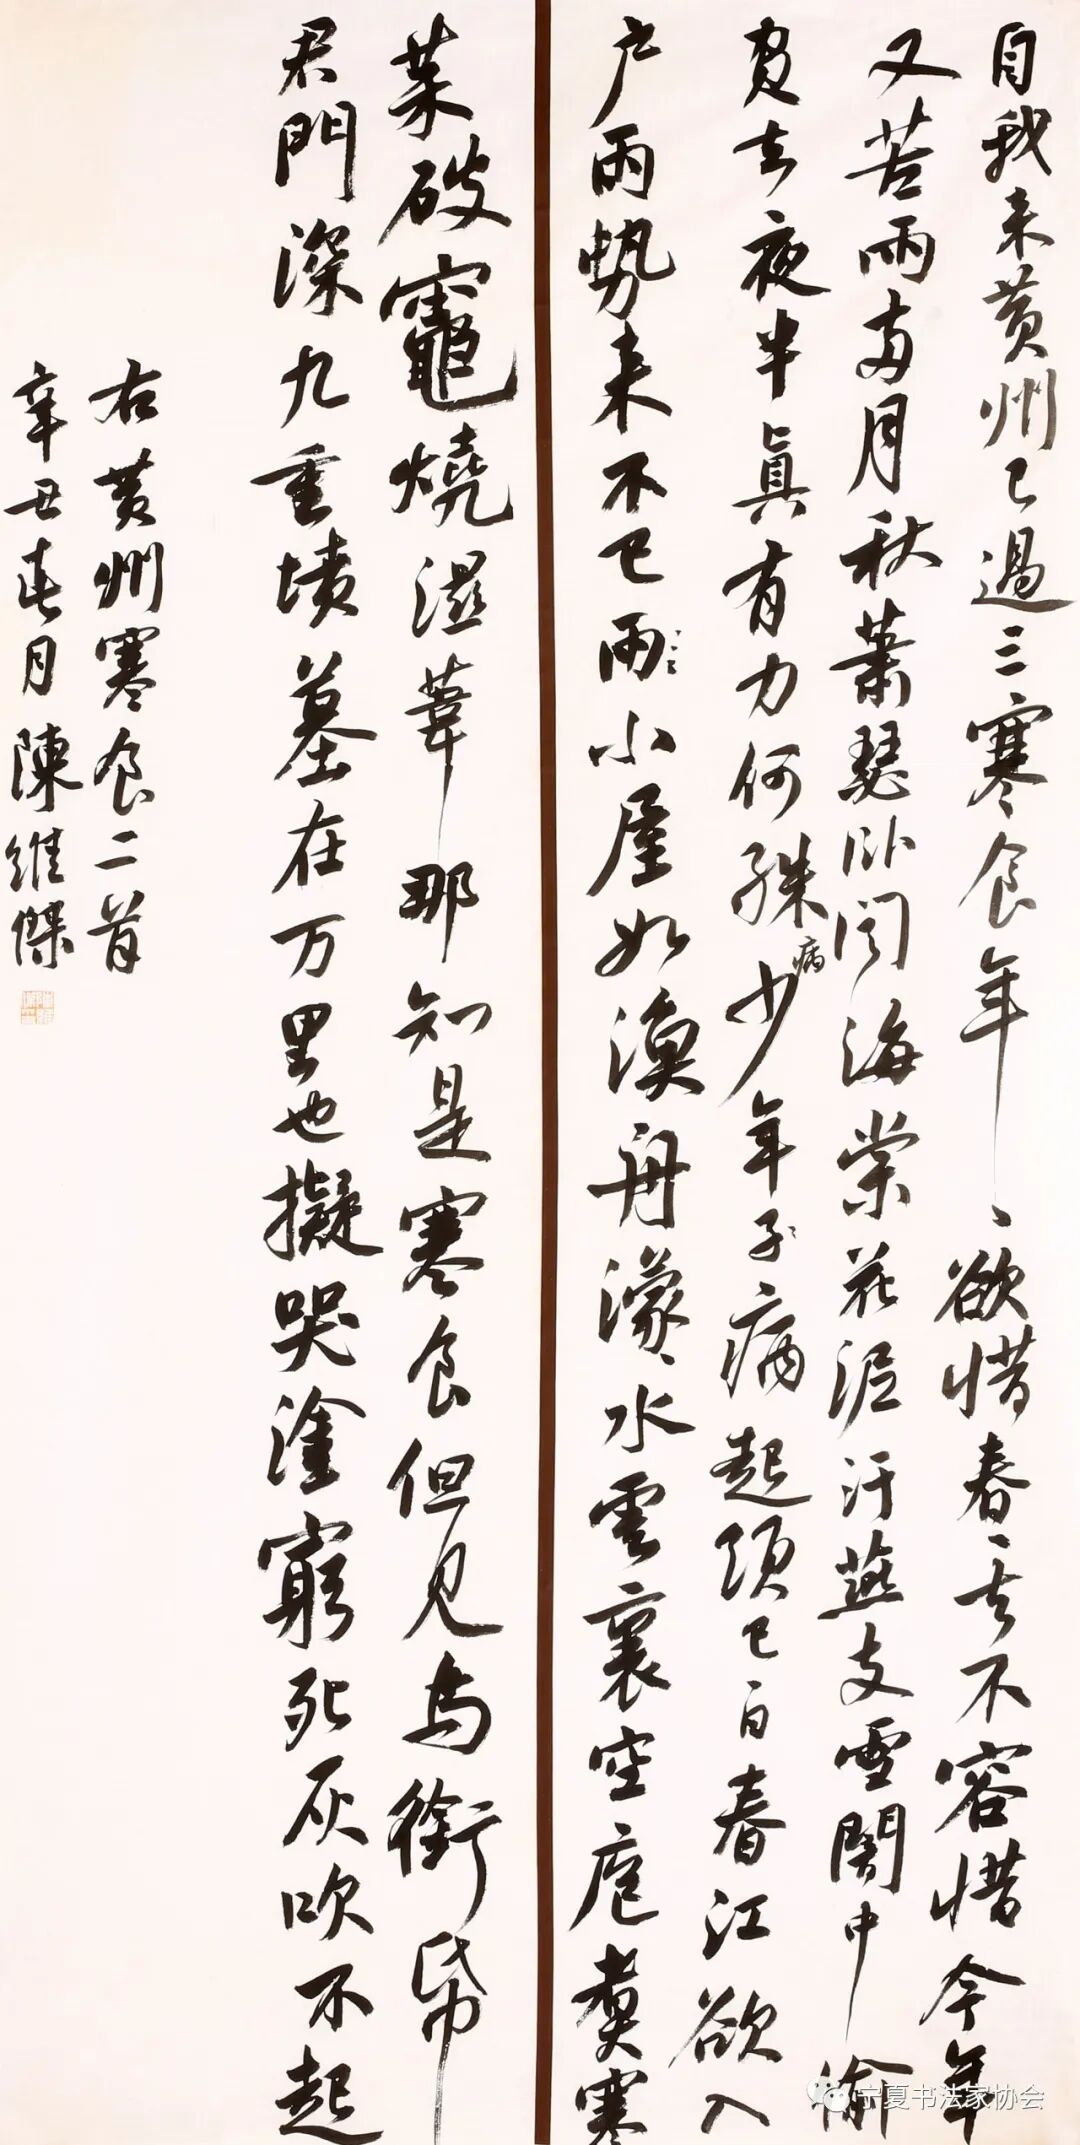 自我来黄州已過三寒食年〻欲惜春〻去不容惜今年
又苦雨两月秋萧瑟卧闻海棠花泥汙燕支雪闇中偷
負去夜半真有力何殊少年子病起须已白春江欲入
病
户雨势来不已雨〻小屋如渔舟濛〻水雲裏空庖煮寒
菜破竈燒湿葦那知是寒食但见乌衔帋
君門深九重墳墓在万里也擬哭塗窮死灰吹不起
右黄州寒食二首
辛丑春月陳維傑
宁夏书法家协会